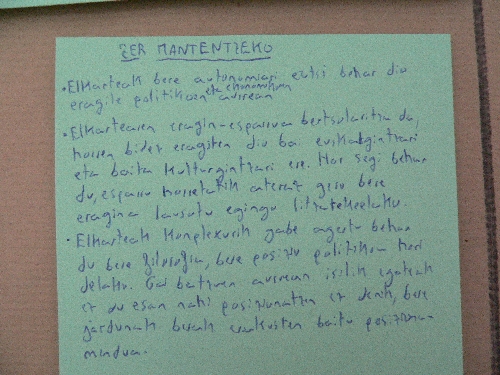 ZER MANTENTZEKO
• Elkarteak bere autonomiari eutsi behar dio
eragile politikoen eta ekonomikoen aurrean
• Elkartearen eragin-esparrua bertsolaritza da,
horren bidez eragiten dio bai euskalgintzari
eta baita kulturgintzari ere. Hor segi behar
du, esparru horretatik aterata gero bere
eragina lausotu egingo litzatekeelako.
• Elkarteak konplexurik gabe agertu behar
du bere filosofia, bere posizio politikoa hori
delako. Gai batzuen aurrean isilik egoteak
ez du esan nahi posizionatzen ez denik, bere
jardunak berak erakusten baitu posizio
mundua.